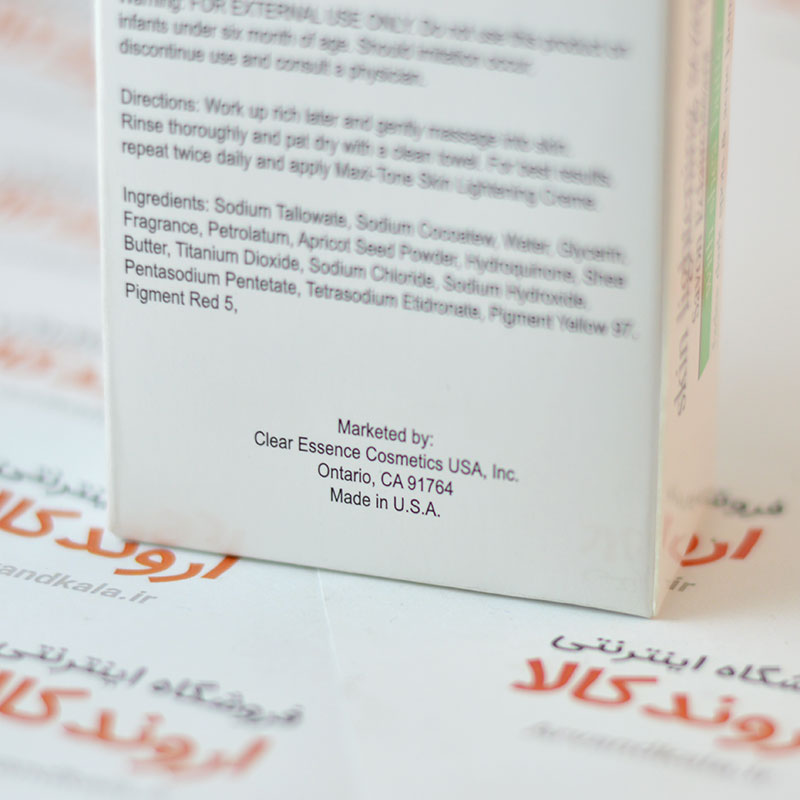 Warning: FOR EXTERNAL USE ONLY. Do not use this product on
infants under six month of age. Should irritation occur,
discontinue use and consult a physician.
Directions: Work up rich later and gently massage into skin.
Rinse thoroughly and pat dry with a clean towel. For best results,
repeat twice daily and apply Maxi-Tone Skin Lightening Creme.
Ingredients: Sodium Tallowate, Sodium Cocoatew, Water, Glycerin,
Fragrance, Petrolatum, Apricot Seed Powder, Hydroquinone, Shea
Butter, Titanium Dioxide, Sodium Chloride, Sodium Hydroxide,
Pentasodium Pentetate, Tetrasodium Etidronate, Pigment Yellow 97,
Pigment Red 5,
Marketed by:
Clear Essence Cosmetics USA, Inc.
Ontario, CA 91764
Made in U.S.A.
skin lightening
اروندکالا
arvandkala.ir
فروشگاه اینترنتی
اروندکالا
فروشگاه اینترنتی
اروندکالا
arvandkala.ir